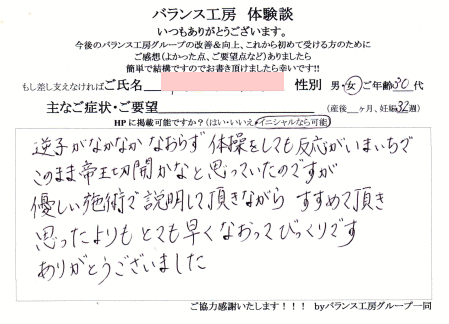 バランス工房 体験談
いつもありがとうございます。
今後のバランス工房グループの改善&向上、これから初めて受ける方のために
ご感想(よかった点、ご要望点など)ありましたら
簡単で結構ですのでお書き頂けましたら幸いです!!
もし差し支えなければご氏名 性別 男・女 ご年齢 30 代
主なご症状・ご要望 (産後 ヶ月、妊娠 32 週)
HPに掲載可能ですか?(はい・いいえ・イニシャルなら可能)
逆子がなかなか なおらず 体操をしても反応がいまいちで
このまま帝王切開かなと思っていたのですが
優しい施術で説明して頂きながら すすめて頂き
思ったよりも とても早く なおって びっくりです
ありがとうございました
ご協力感謝いたします!!! byバランス工房グループ一同